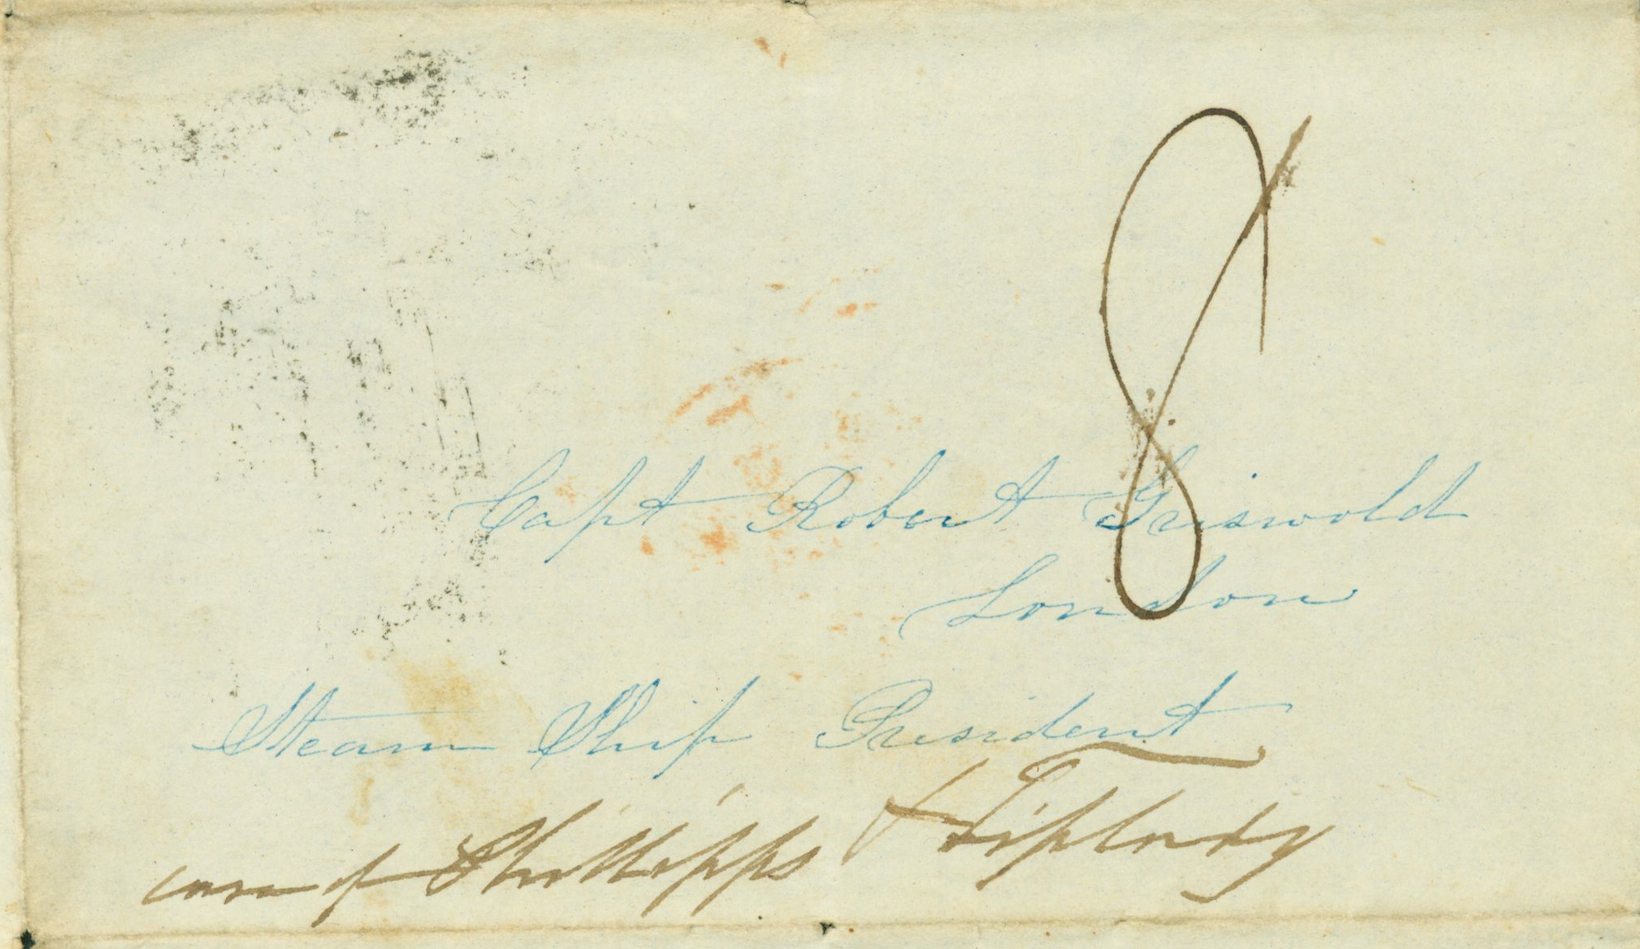 8
Capt Robert Griswold
London
Steam Ship President
care of Phillipps & Tiplady